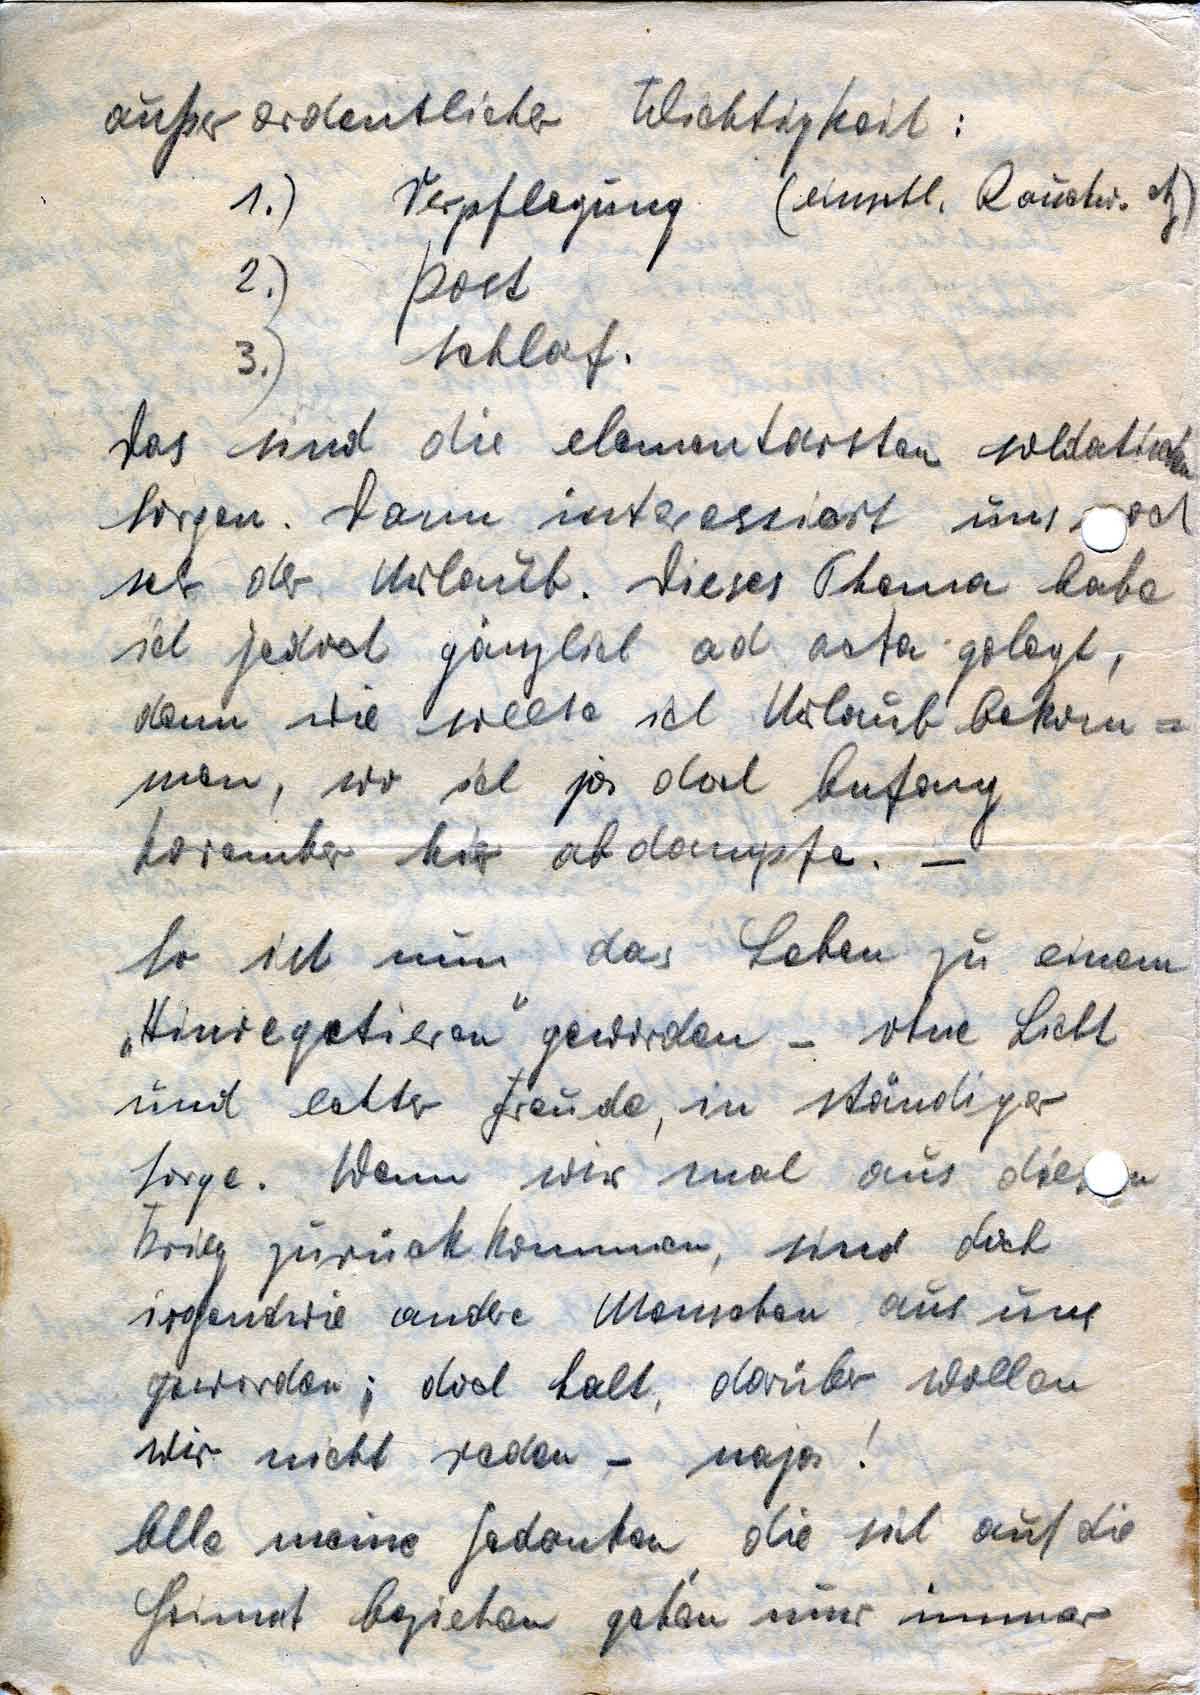 außerordentlicher Wichtigkeit:
1.) Verpflegung (einschl. Rauchw. etz)
2.) Post
3.) Schlaf.
Das sind die elementarsten soldatischen
Sorgen. Dann interessiert uns noch
sehr der Urlaub. Dieses Thema habe
ich jedoch gänzlich ad acta gelegt,
denn wie sollte ich Urlaub bekom=
men, wo ich ja doch Anfang
November hier abdampfe. —
So ist nun das Leben zu einem
„Hinvegetieren" geworden – ohne Licht
und echter Freude, in ständiger
Sorge. Wenn wir mal aus diesem
Krieg zurückkommen, sind doch
irgendwie andere Menschen aus uns
geworden; doch halt, darüber wollen
wir nicht reden – naja!
Alle meine Gedanken, die sich auf die
Heimat beziehen gehen nur immer